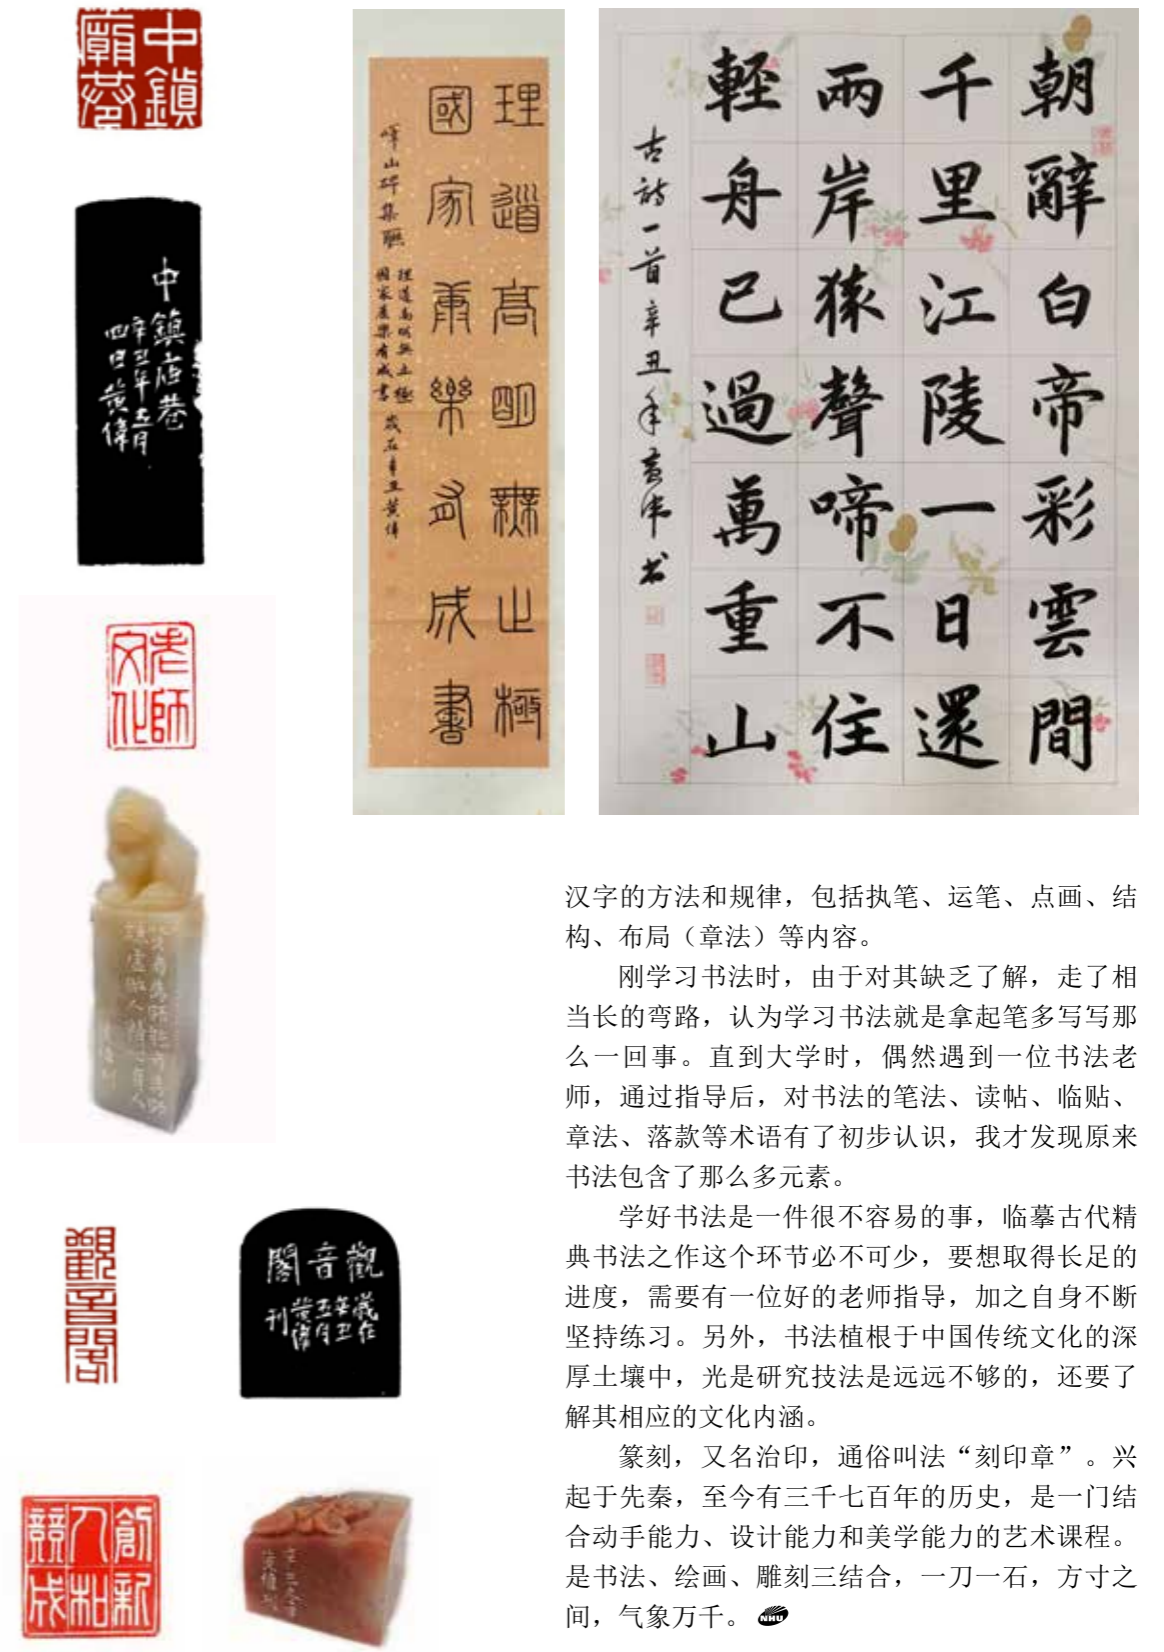 中鎮
廟巷
中鎮庙巷
辛丑年五月
四日黄偉
老師
文化
觀音閣
觀音閣
歲在
辛丑
五月
黄偉
刊
創新
人和
競成
理道高明無止極
國家康樂有成書
嶧山碑集聯
理道高明無止極
國家康樂有成書
歲在辛丑黄偉
朝辭白帝彩雲間
千里江陵一日還
兩岸猿聲啼不住
輕舟已過萬重山
古詩一首辛丑年黄伟书
汉字的方法和规律，包括执笔、运笔、点画、结
构、布局（章法）等内容。
刚学习书法时，由于对其缺乏了解，走了相
当长的弯路，认为学习书法就是拿起笔多写写那
么一回事。直到大学时，偶然遇到一位书法老
师，通过指导后，对书法的笔法、读帖、临贴、
章法、落款等术语有了初步认识，我才发现原来
书法包含了那么多元素。
学好书法是一件很不容易的事，临摹古代精
典书法之作这个环节必不可少，要想取得长足的
进度，需要有一位好的老师指导，加之自身不断
坚持练习。另外，书法植根于中国传统文化的深
厚土壤中，光是研究技法是远远不够的，还要了
解其相应的文化内涵。
篆刻，又名治印，通俗叫法“刻印章”。兴
起于先秦，至今有三千七百年的历史，是一门结
合动手能力、设计能力和美学能力的艺术课程。
是书法、绘画、雕刻三结合，一刀一石，方寸之
间，气象万千。NHU